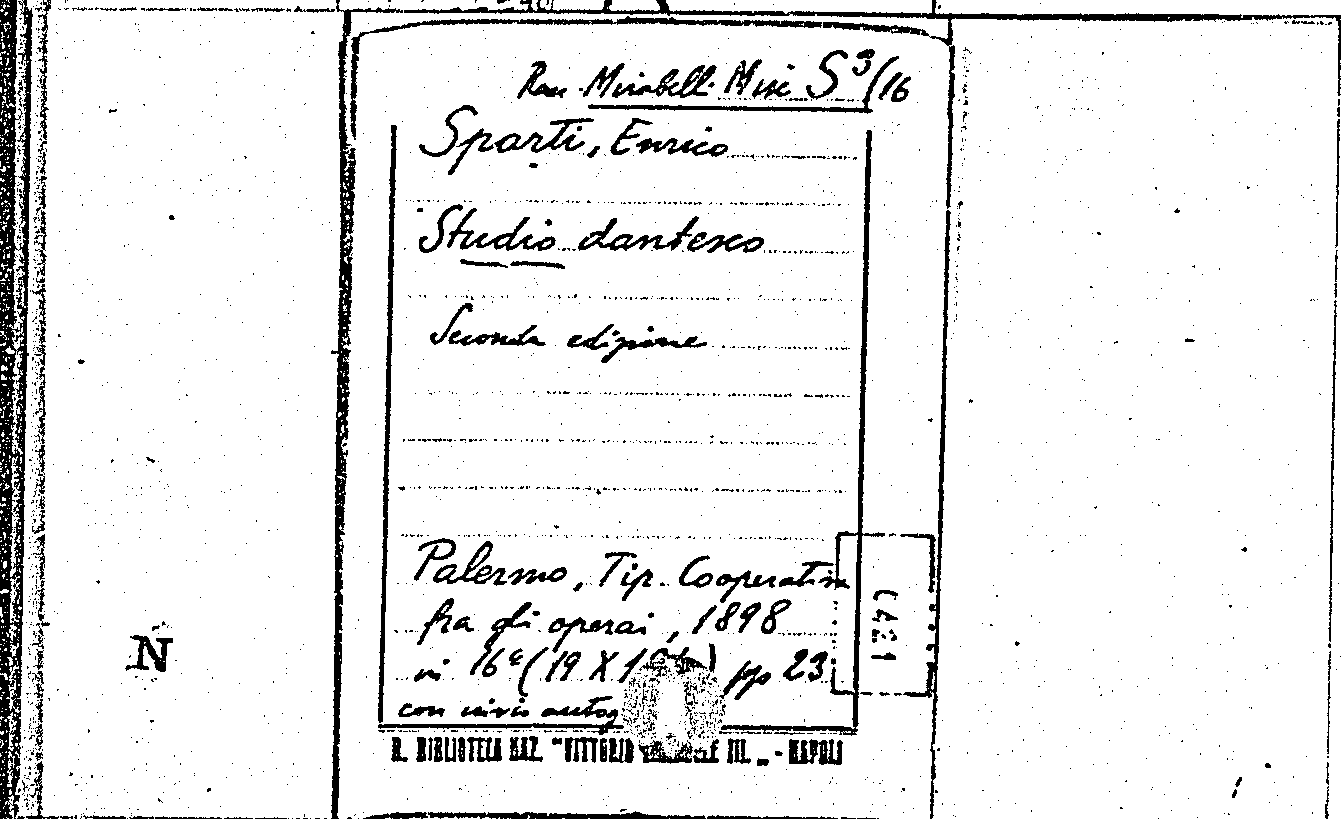 Rac. Mirabelli Misc S³/16
Sparti, Enrico
Studio dantesco
Seconda edizione
Palermo, Tip. Cooperativa
fra gli operai, 1898
in 16° (19 X 1 ) pp 23
con invio autog
R. BIBLIOTECA NAZ. "VITTORIO III. „ - NAPOLI
N